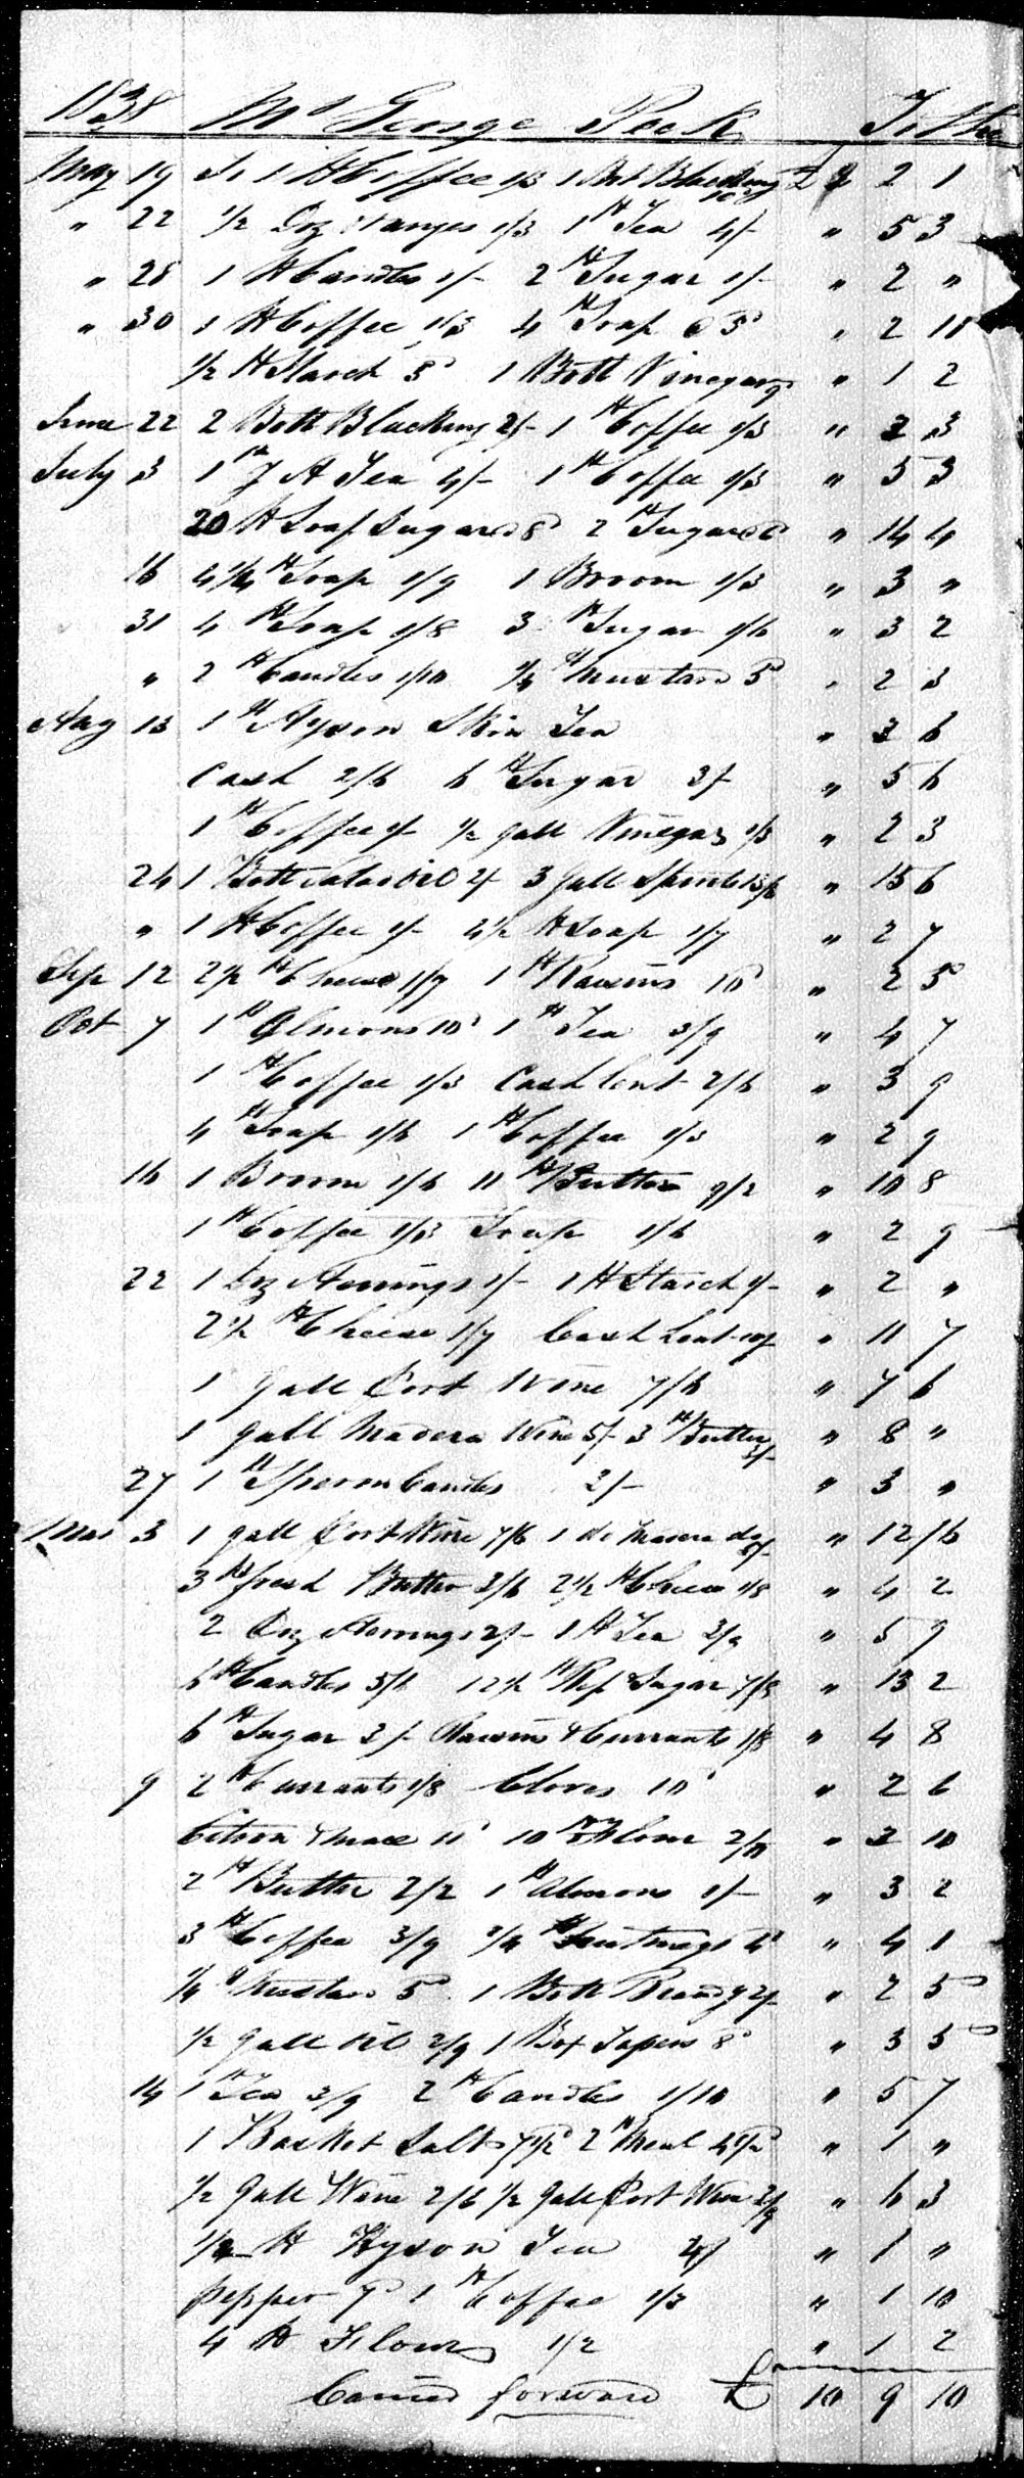 1838 Mr George Peck To the
May 19 To 1 lb Coffee 1/3 1 Bot Blacking 10d £ " 2 1
" 22 1/2 Doz Oranges 1/3 1 lb Tea 4/- " 5 3
" 28 1 lb Candles 1/- 2 lb Sugar 1/- " 2 "
" 30 1 lb Coffee 1/3 4 lb Soap @ 5d " 2 11
1/2 lb Starch 5d 1 Bott Vinegar 9d " 1 2
June 22 2 Bott Blacking 2/- 1 lb Coffee 1/3 " 3 3
July 3 1 lb J H Tea 4/- 1 lb Coffee 1/3 " 5 3
20 lb Loaf Sugar @ 8d 2 lb Sugar @ 6d " 14 4
16 4 1/4 lb Soap 1/9 1 Broom 1/3 " 3 "
31 4 lb Soap 1/8 3 lb Sugar 1/6 " 3 2
" 2 lb Candles 1/10 1/4 lb Mustard 5d " 2 3
Aug 13 1 lb Hyson Skin Tea " 3 6
Cash 2/6 6 lb Sugar 3/- " 5 6
1 lb Coffee 1/- 1/2 Gall Vinegar 1/3 " 2 3
24 1 Bott Salad Oil 2/- 3 Gall Spirits 13/6 " 15 6
" 1 lb Coffee 1/- 4 1/2 lb Soap 1/7 " 2 7
Sep 12 2 1/2 lb Cheese 1/7 1 lb Raisins 10d " 2 5
Oct 7 1 lb Almons 10d 1 lb Tea 3/9 " 4 7
1 lb Coffee 1/3 Cash Lent 2/6 " 3 9
4 lb Soap 1/6 1 lb Coffee 1/3 " 2 9
16 1 Broom 1/6 11 lb Butter 9/2 " 10 8
1 lb Coffee 1/3 Soap 1/6 " 2 9
22 1 Doz Herrings 1/- 1 lb Starch 1/- " 2 "
2 1/2 lb Cheese 1/7 Cash Lent 10/- " 11 7
1 Gall Port Wine 7/6 " 7 6
1 Gall Madera Wine 5/- 3 lb Butter 3/- " 8 "
27 1 lb Sperm Candles 3/- " 3 "
3 1 Gall Port Wine 7/6 1 do Madera do 5/- " 12/6
3 lb fresh Butter 2/6 2 1/2 lb Cheese 1/8 " 4 2
2 Doz Herrings 2/- 1 lb Tea 3/9 " 5 9
6 lb Candles 5/6 12 1/2 lb Rif Sugar 7/8 " 13 2
6 lb Sugar 3/- Raisins & Currants 1/8 " 4 8
9 2 lb Currants 1/8 Cloves 10d " 2 6
Citron & Mace 11d 10 lb Flour 2/11 " 3 10
2 lb Butter 2/2 1 lb Almons 1/- " 3 2
3 lb Coffee 3/9 Nutmegs 4d " 4 1
1/4 lb Mustard 5d 1 Bott Brandy 2/- " 2 5
1/2 Gall Oil 2/9 1 Box Tapers 8d " 3 5
14 1 lb Tea 3/9 2 lb Candles 1/10 " 5 7
1 Basket Salt 7 1/2d 2 lb Meal 4 1/2d " 1 "
1/2 Gall Wine 2/6 1/2 Gall Port Wine 3/9 " 6 3
1/4 lb Hyson Tea " 1 "
Pepper 7d 1 lb Coffee 1/3 " 1 10
4 lb Flour 1/2 " 1 2
Carried forward £ 10 9 10